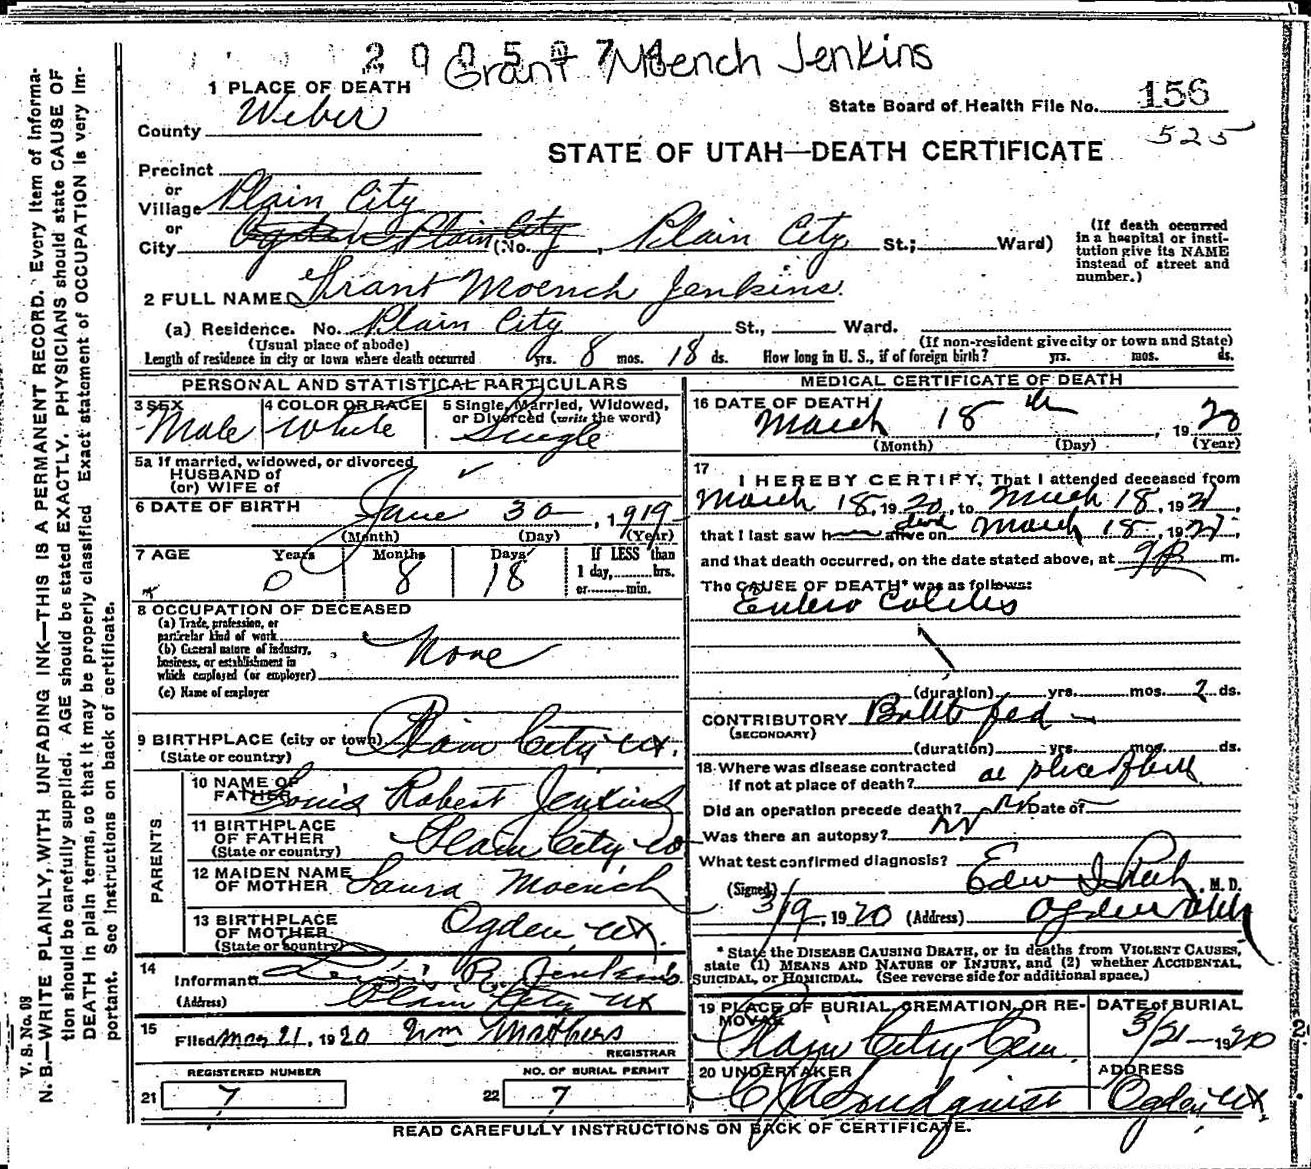 2005074
Grant Moench Jenkins
1 PLACE OF DEATH
State Board of Health File No. 156
525
County Weber
STATE OF UTAH—DEATH CERTIFICATE
Precinct
or
Village Plain City
or
City Ogden Plain City (No. , Plain City St.; Ward)
(If death occurred in a hospital or institution give its NAME instead of street and number.)
2 FULL NAME Grant Moench Jenkins
(a) Residence. No. Plain City St., Ward.
(Usual place of abode)
(If non-resident give city or town and State)
Length of residence in city or town where death occurred yrs. 8 mos. 18 ds. How long in U. S., if of foreign birth? yrs. mos. ds.
PERSONAL AND STATISTICAL PARTICULARS
3 SEX Male
4 COLOR OR RACE White
5 Single, Married, Widowed, or Divorced (write the word) Single
5a If married, widowed, or divorced
HUSBAND of
(or) WIFE of
6 DATE OF BIRTH June 30, 1919
(Month) (Day) (Year)
7 AGE Years Months Days If LESS than
0 8 18 1 day, hrs.
or min.
8 OCCUPATION OF DECEASED
(a) Trade, profession, or
particular kind of work
(b) General nature of industry,
business, or establishment in
which employed (or employer) None
(c) Name of employer
9 BIRTHPLACE (city or town) Plain City Ut.
(State or country)
PARENTS
10 NAME OF FATHER Louis Robert Jenkins
11 BIRTHPLACE
OF FATHER Plain City
(State or country)
12 MAIDEN NAME
OF MOTHER Laura Moench
13 BIRTHPLACE
OF MOTHER Ogden, Ut.
(State or country)
14
Informant R. Jenkins
(Address) Plain City Ut
15
Filed Mar 21, 1920 Wm Mathers
REGISTRAR
REGISTERED NUMBER NO. OF BURIAL PERMIT
21 7 22 7
MEDICAL CERTIFICATE OF DEATH
16 DATE OF DEATH
March 18th, 1920
(Month) (Day) (Year)
17
I HEREBY CERTIFY, That I attended deceased from
March 18, 1920, to March 18, 192
that I last saw h alive on dead March 18, 192
and that death occurred, on the date stated above, at 9 P m.
The CAUSE OF DEATH* was as follows:
Entero Colitis
(duration) yrs. mos. 2 ds.
CONTRIBUTORY Bottle fed
(SECONDARY)
(duration) yrs. mos. ds.
18 Where was disease contracted
if not at place of death? at place of
Did an operation precede death? no Date of
Was there an autopsy? no
What test confirmed diagnosis?
(Signed) Edw I Rich, M. D.
3/19, 1920 (Address) Ogden Utah
* State the DISEASE CAUSING DEATH, or in deaths from VIOLENT CAUSES,
state (1) MEANS AND NATURE OF INJURY, and (2) whether ACCIDENTAL,
SUICIDAL, or HOMICIDAL. (See reverse side for additional space.)
19 PLACE OF BURIAL, CREMATION, OR REMOVAL
Plain City Cem.
DATE of BURIAL
3/21-1920
20 UNDERTAKER
Lindquist
ADDRESS
Ogden, Ut.
READ CAREFULLY INSTRUCTIONS ON BACK OF CERTIFICATE.
V. S. No. 09
N. B.—WRITE PLAINLY, WITH UNFADING INK—THIS IS A PERMANENT RECORD. Every item of informa-
tion should be carefully supplied. AGE should be stated EXACTLY. PHYSICIANS should state CAUSE OF
DEATH in plain terms, so that it may be properly classified. Exact statement of OCCUPATION is very im-
portant. See instructions on back of certificate.